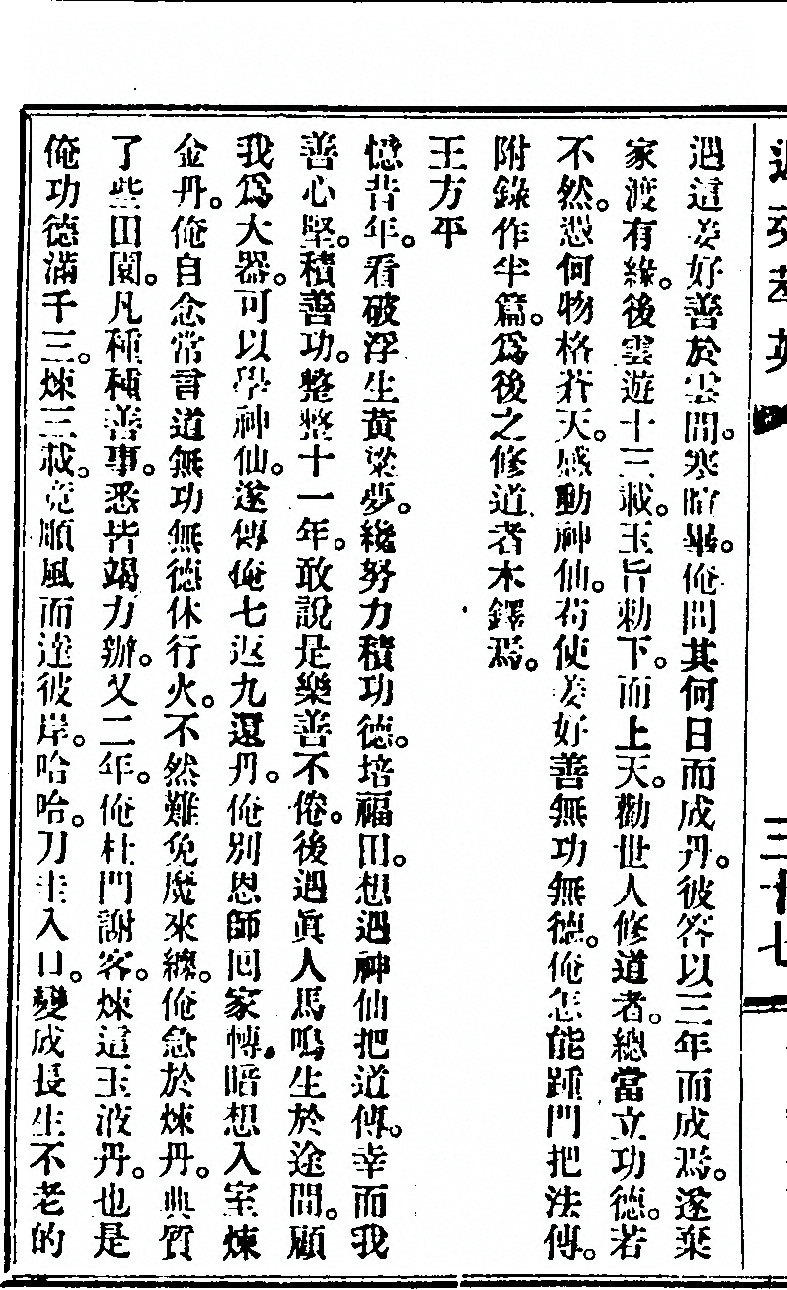 三十七
遇這姜好善於雲間。寒暄畢。俺問其何日而成丹。彼答以三年而成焉。遂棄
家渡有緣。後雲遊十三載。玉旨勅下。而上天。勸世人修道者。總當立功德。若
不然。憑何物格蒼天。感動神仙。苟使姜好善無功無德。俺怎能踵門把法傳。
附錄作半篇。爲後之修道者木鐸焉。
王方平
憶昔年。看破浮生黃粱夢。纔努力積功德。培福田。想遇神仙把道傳。幸而我
善心堅。積善功。整整十一年。敢說是樂善不倦。後遇眞人馬鳴生於途間。顧
我爲大器。可以學神仙。遂傳俺七返九還丹。俺別恩師回家轉。暗想入室煉
金丹。俺自念常言道無功無德休行火。不然難免魔來纏。俺急於煉丹。典質
了些田園。凡種種善事。悉皆竭力辦。又二年。俺杜門謝客。煉這玉液丹。也是
俺功德滿千三。煉三載。竟順風而達彼岸。哈哈。刀圭入口。變成長生不老的